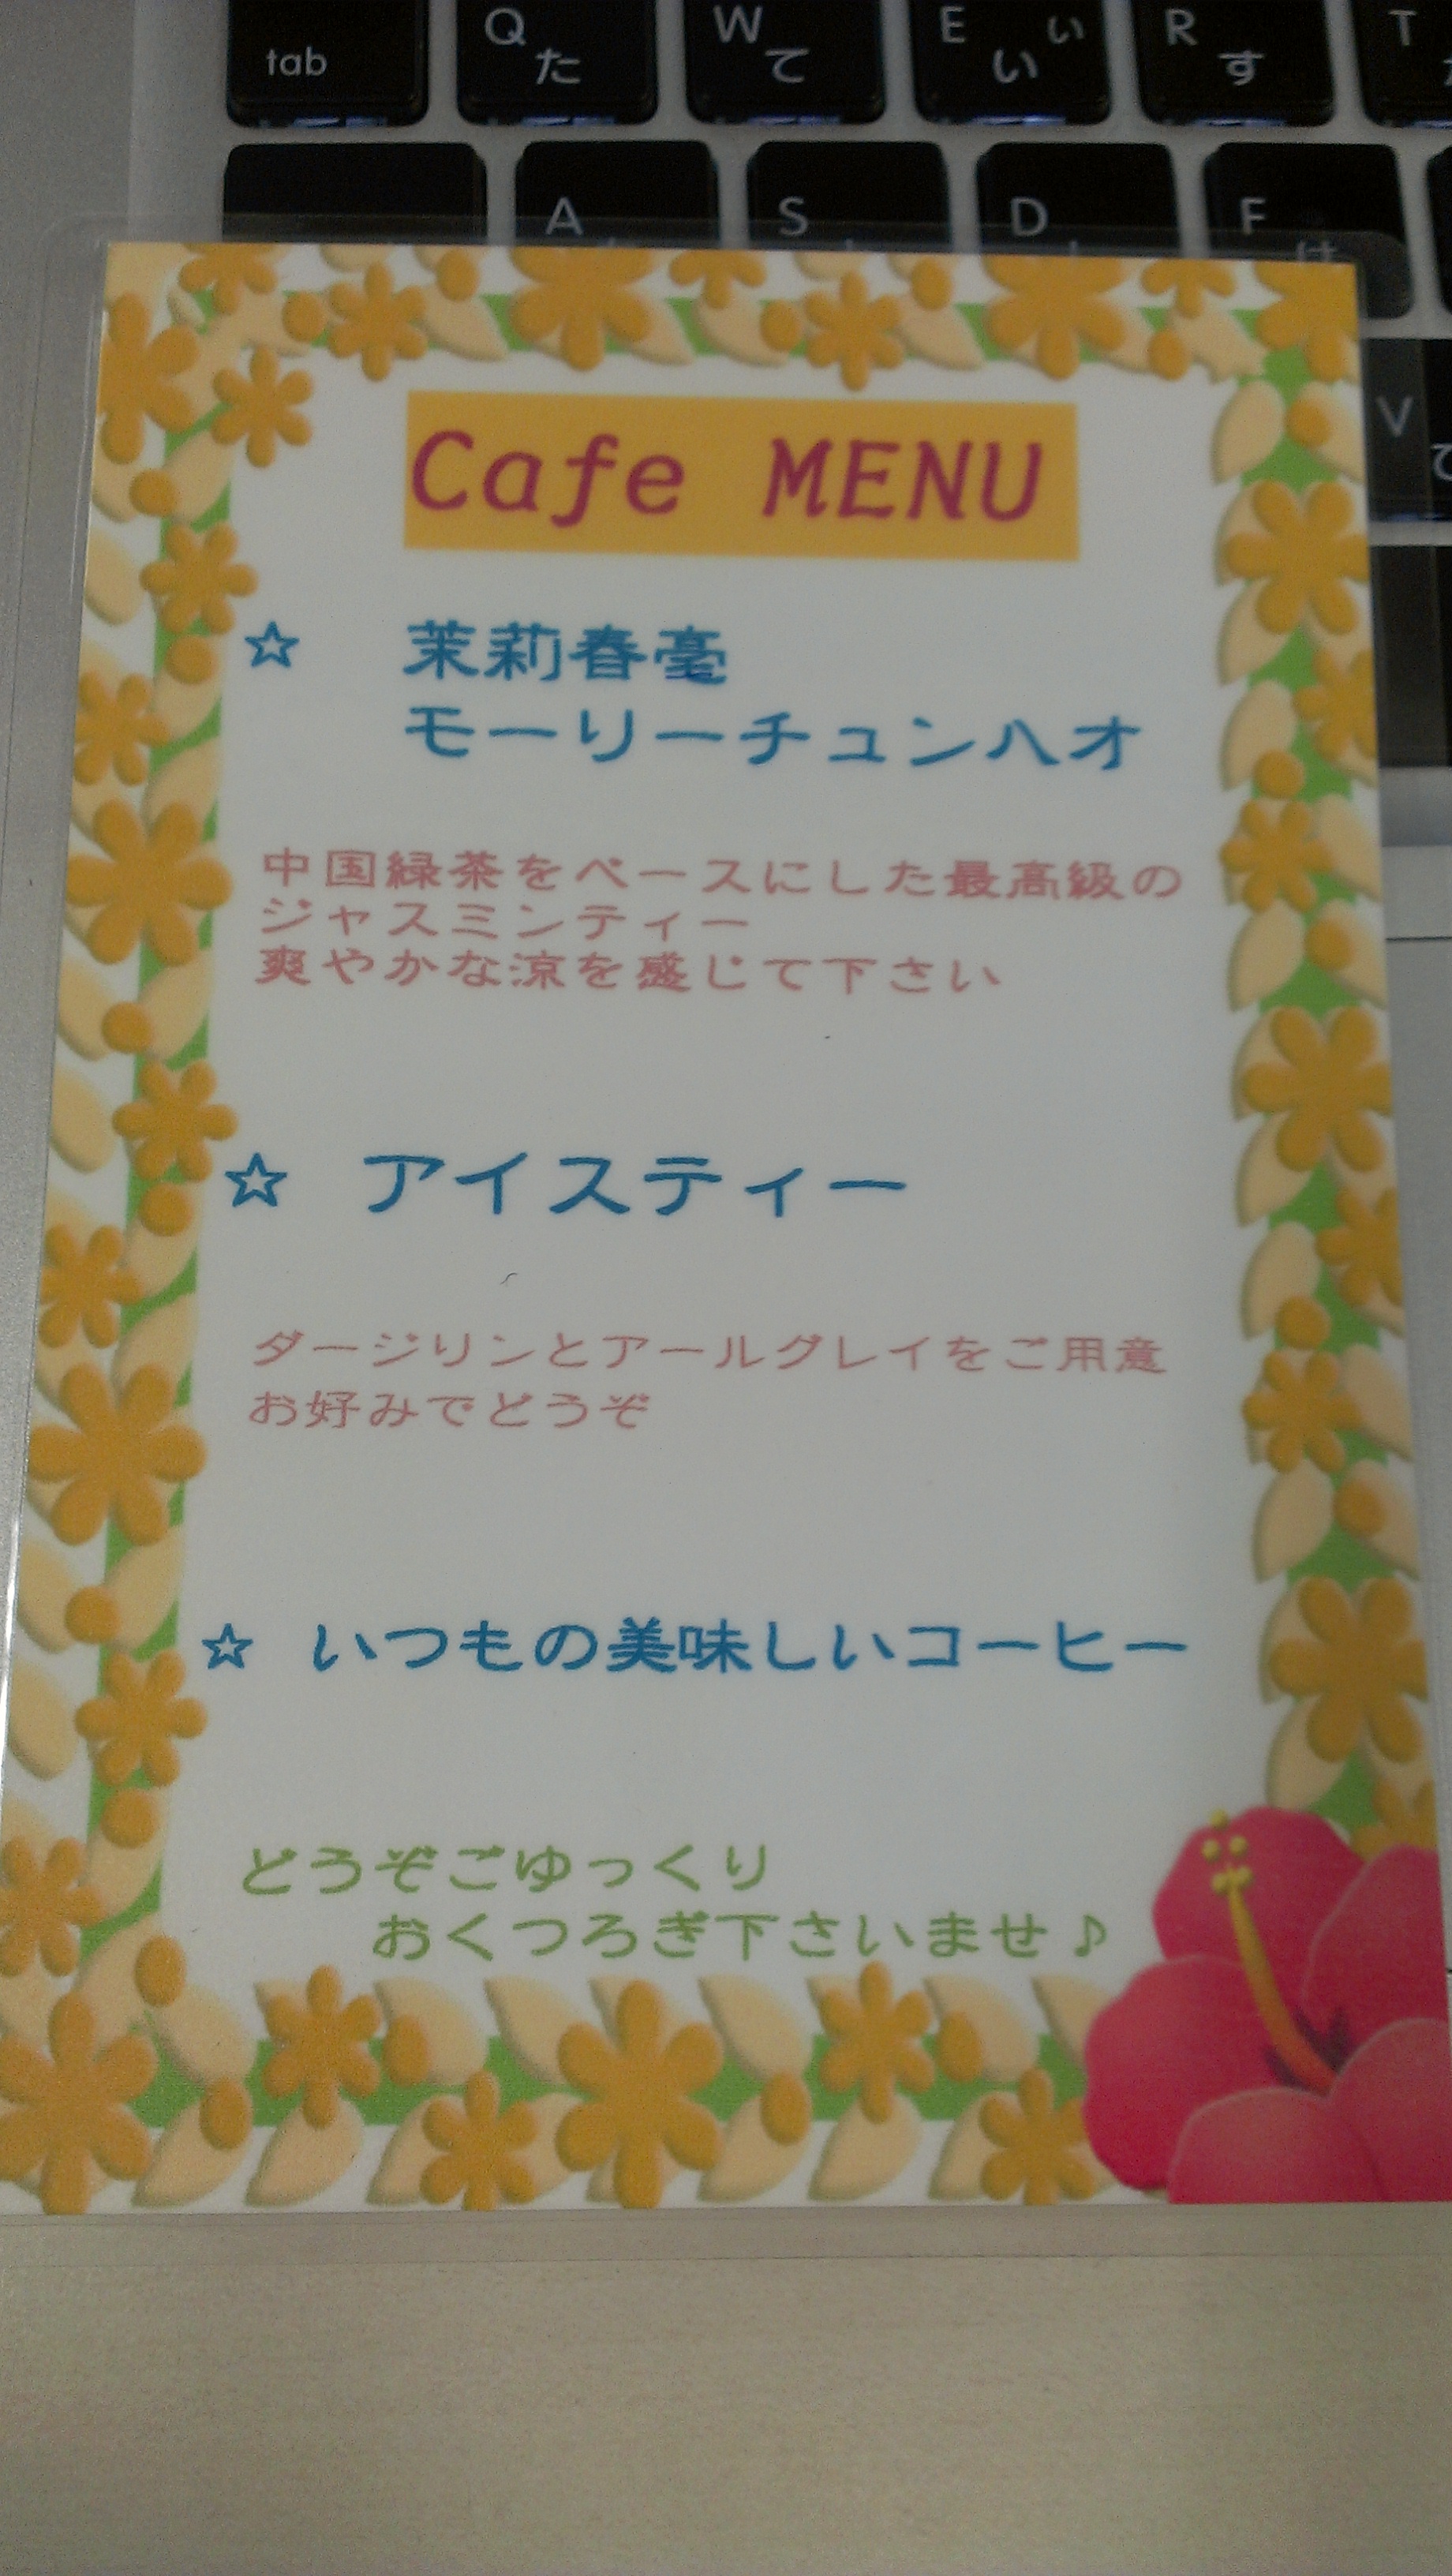 tab
Q
た
W
て
E
ぃ
い
R
す
T
A
S
D
F
は
V
Cafe MENU
☆ 茉莉春毫
モーリーチュンハオ
中国緑茶をベースにした最高級の
ジャスミンティー
爽やかな涼を感じて下さい
☆ アイスティー
ダージリンとアールグレイをご用意
お好みでどうぞ
☆ いつもの美味しいコーヒー
どうぞごゆっくり
おくつろぎ下さいませ♪